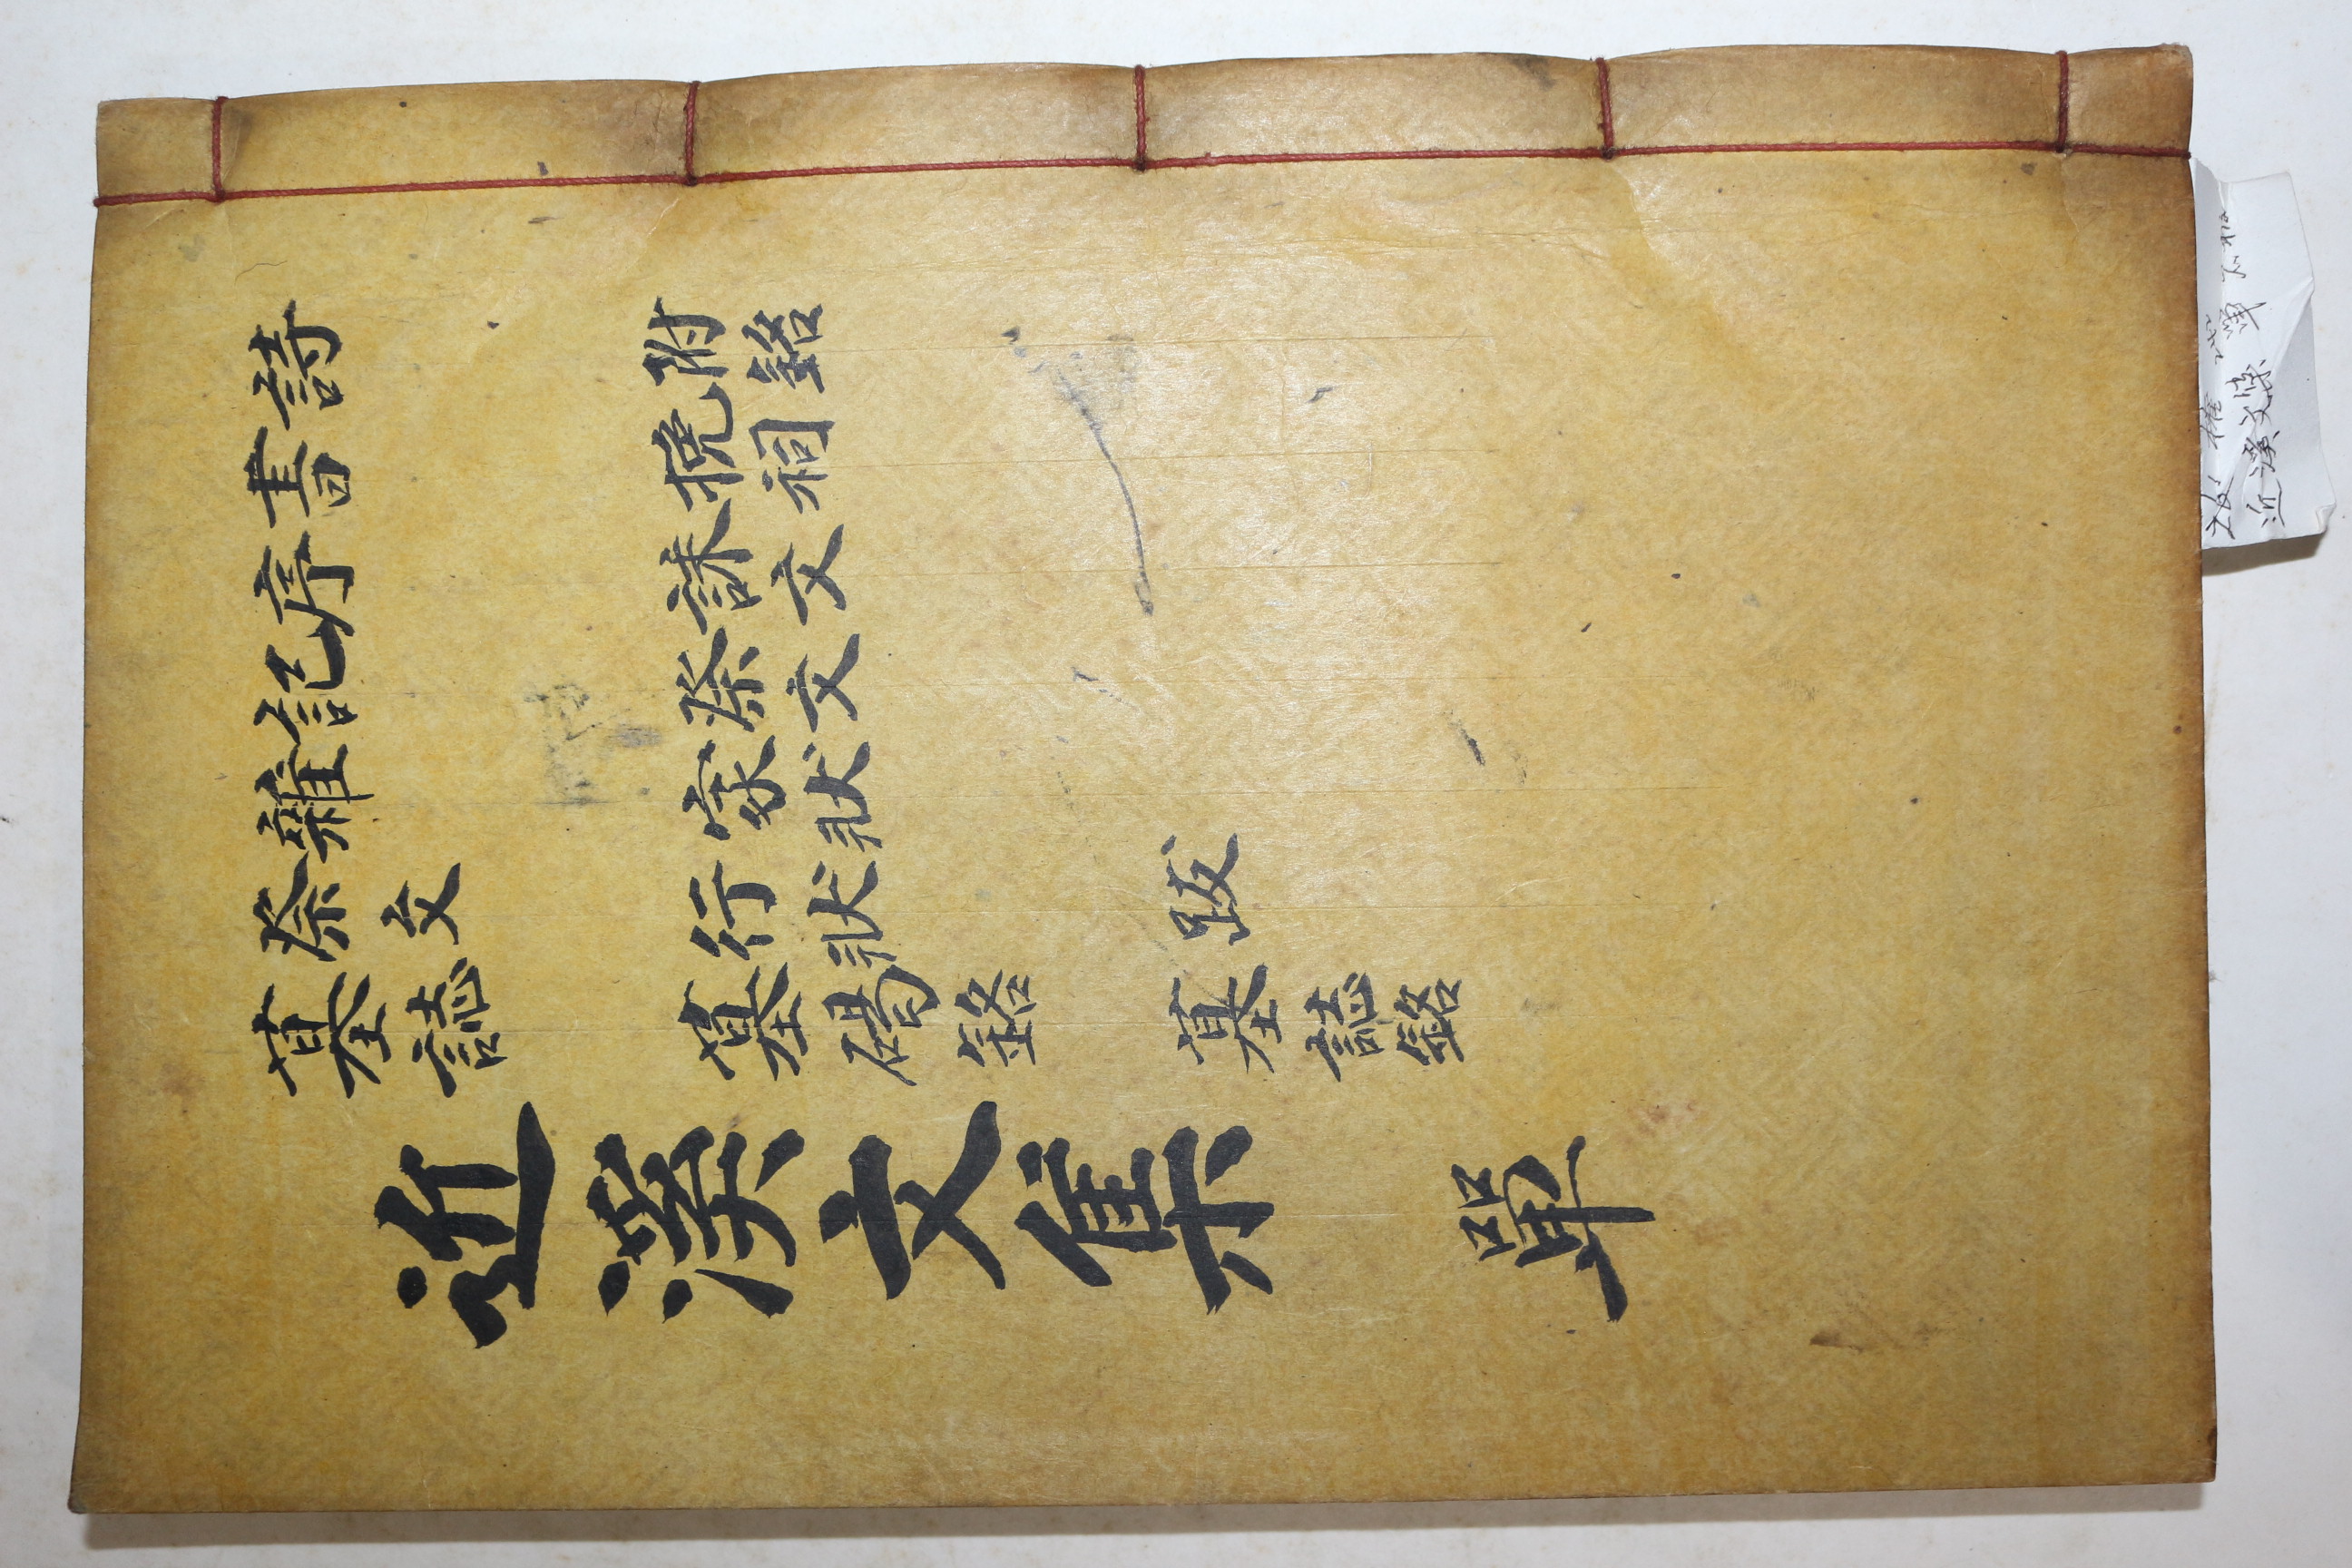 詩
書
序
記
雜
祭文
墓誌
附銘
挽祠
誄文
祭文
家狀
行狀
墓碣銘
跋
墓誌銘
近溪文集 單
近溪文集 單